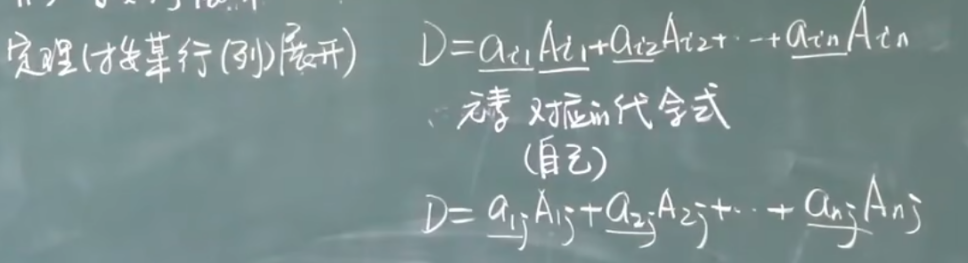 定理(按某行(列)展开) D=a_{i1}A_{i1}+a_{i2}A_{i2}+⋯+a_{in}A_{in}
元素 对应的代余式
(自己)
D=a_{1j}A_{1j}+a_{2j}A_{2j}+⋯+a_{nj}A_{nj}